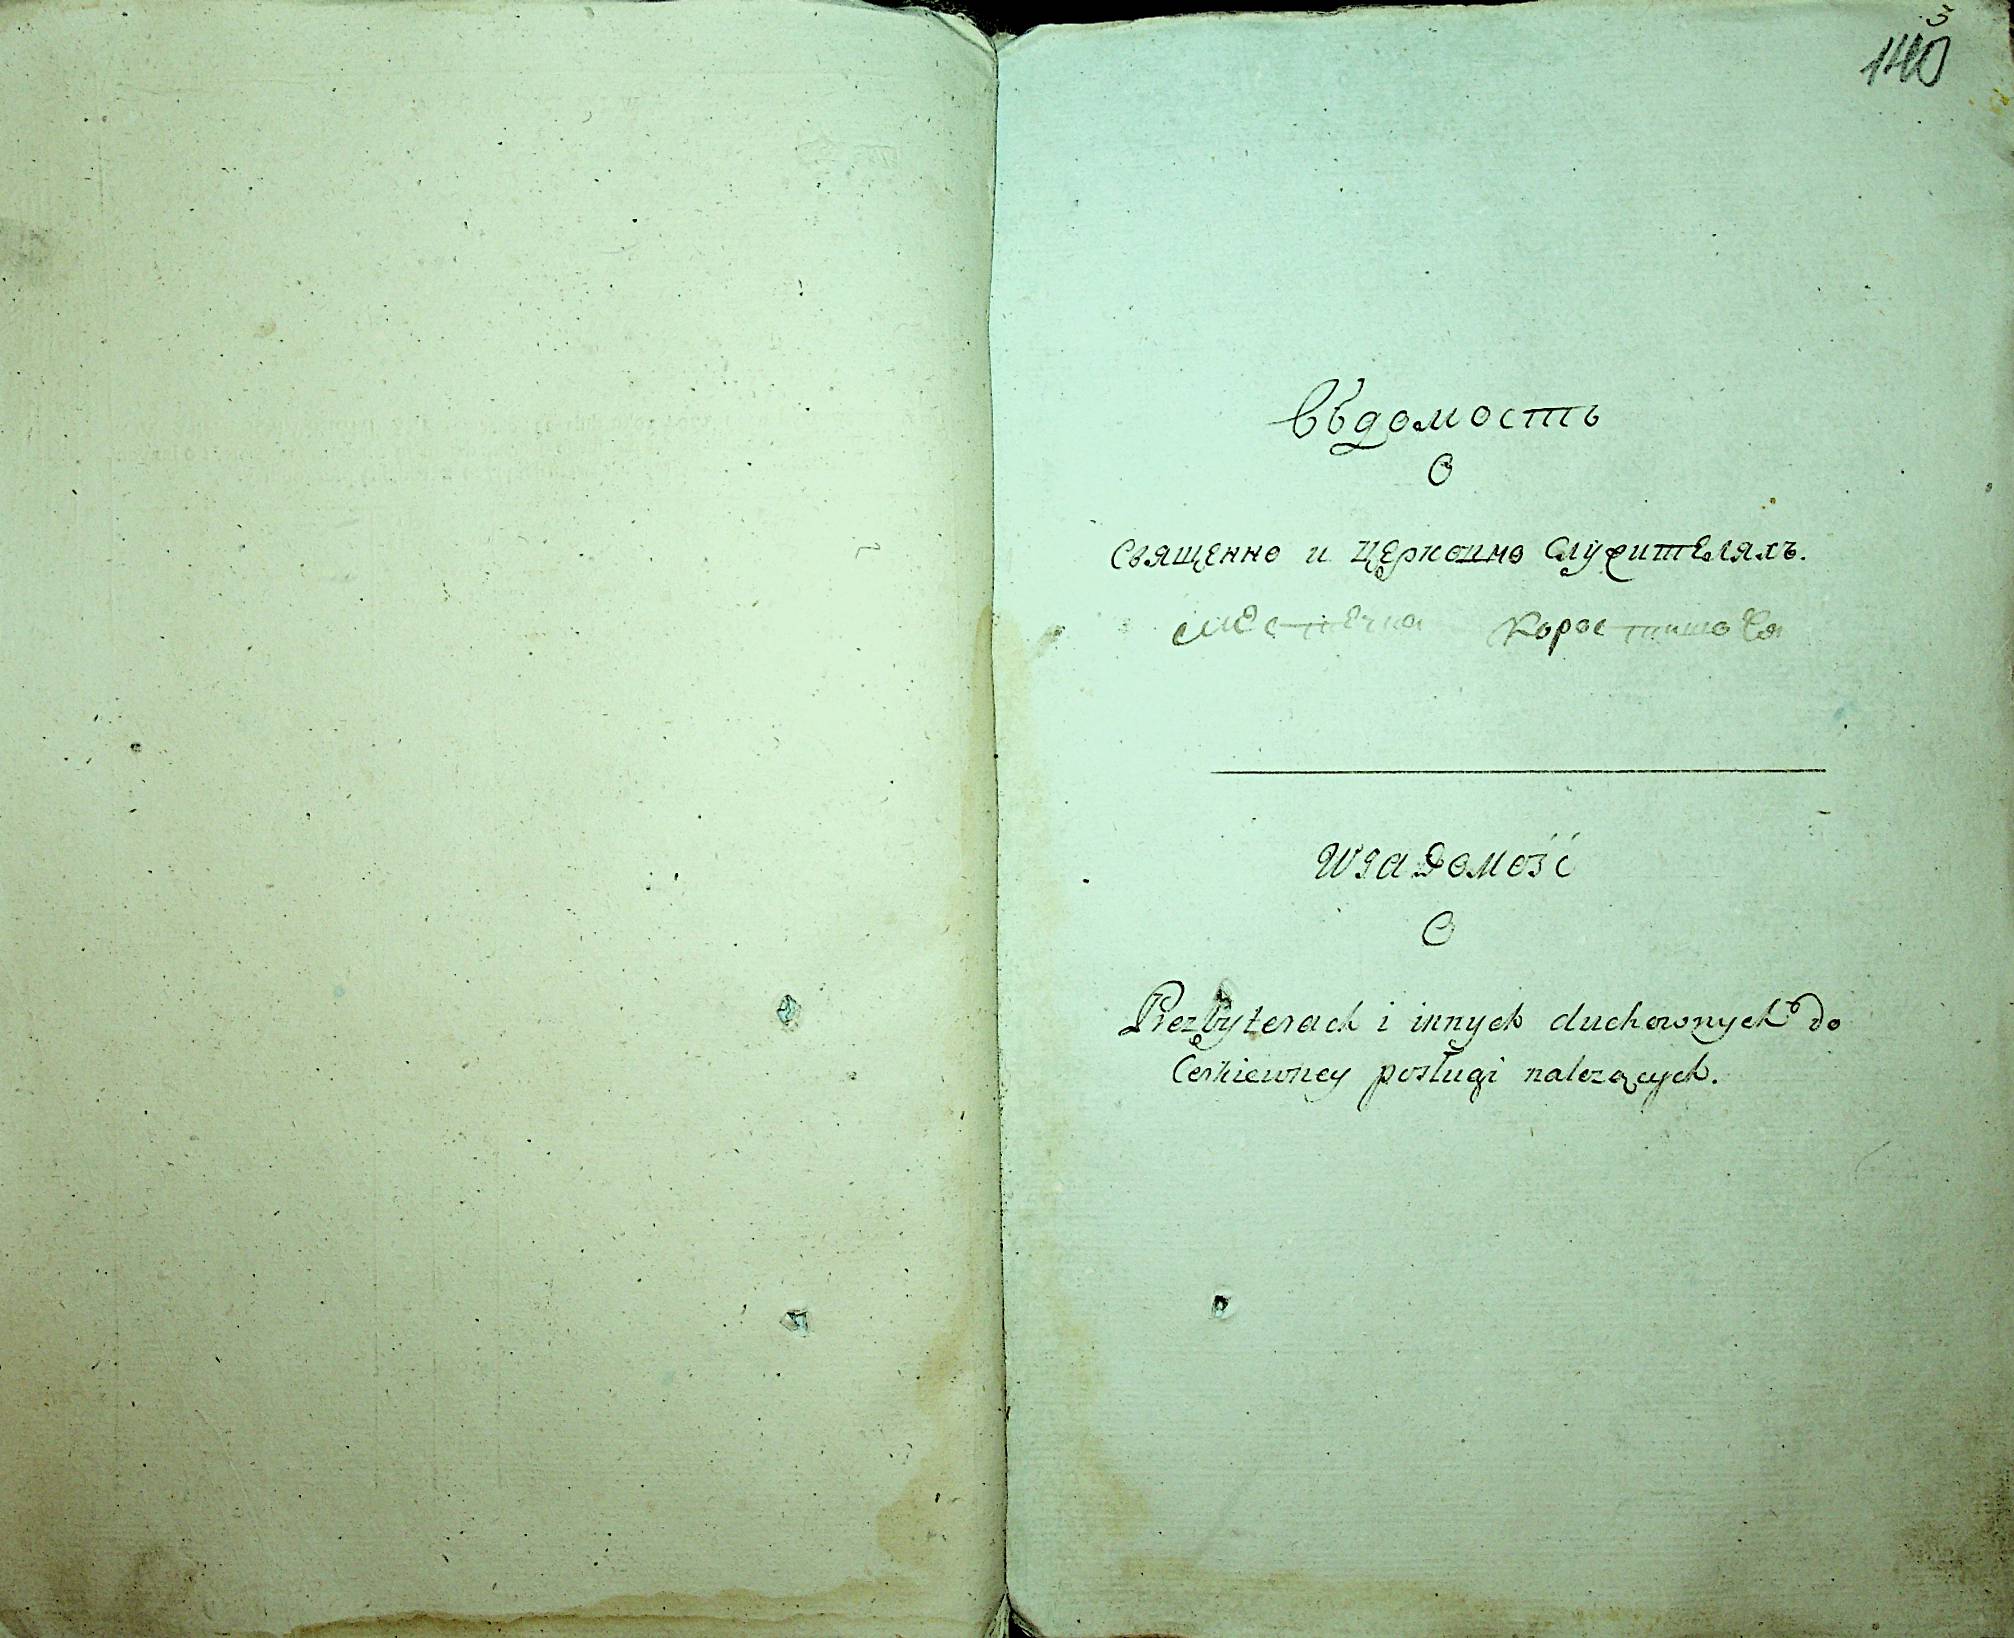 140
Вѣдомость
О
Священно и Церковно Служителяхъ.
Местечка Коростишова
Wiadomość
O
Prezbyterach i innych duchownych do
Cerkiewney posługi należących.